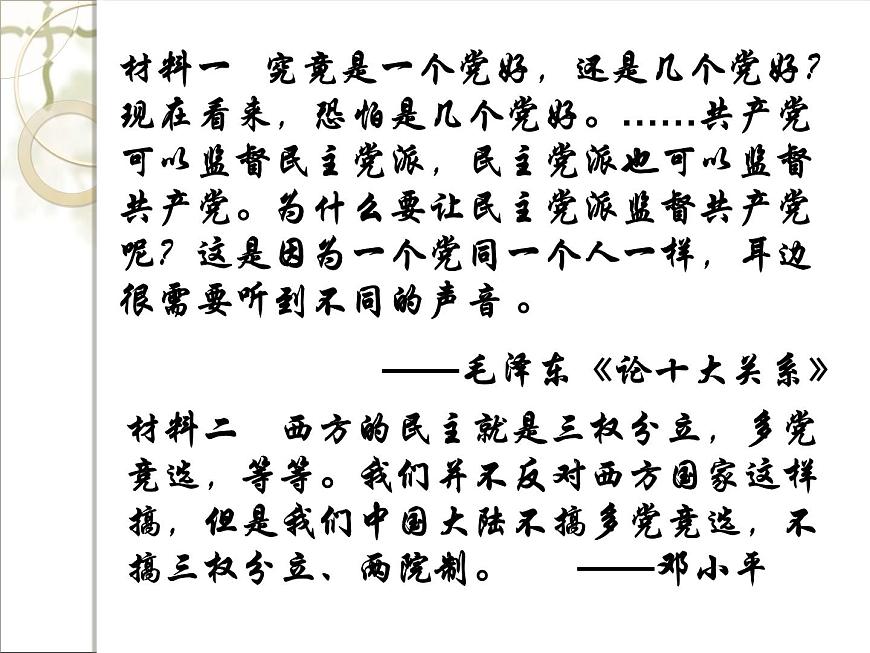 材料一 究竟是一个党好，还是几个党好？
现在看来，恐怕是几个党好。……共产党
可以监督民主党派，民主党派也可以监督
共产党。为什么要让民主党派监督共产党
呢？这是因为一个党同一个人一样，耳边
很需要听到不同的声音 。
——毛泽东《论十大关系》
材料二 西方的民主就是三权分立，多党
竞选，等等。我们并不反对西方国家这样
搞，但是我们中国大陆不搞多党竞选，不
搞三权分立、两院制。 ——邓小平